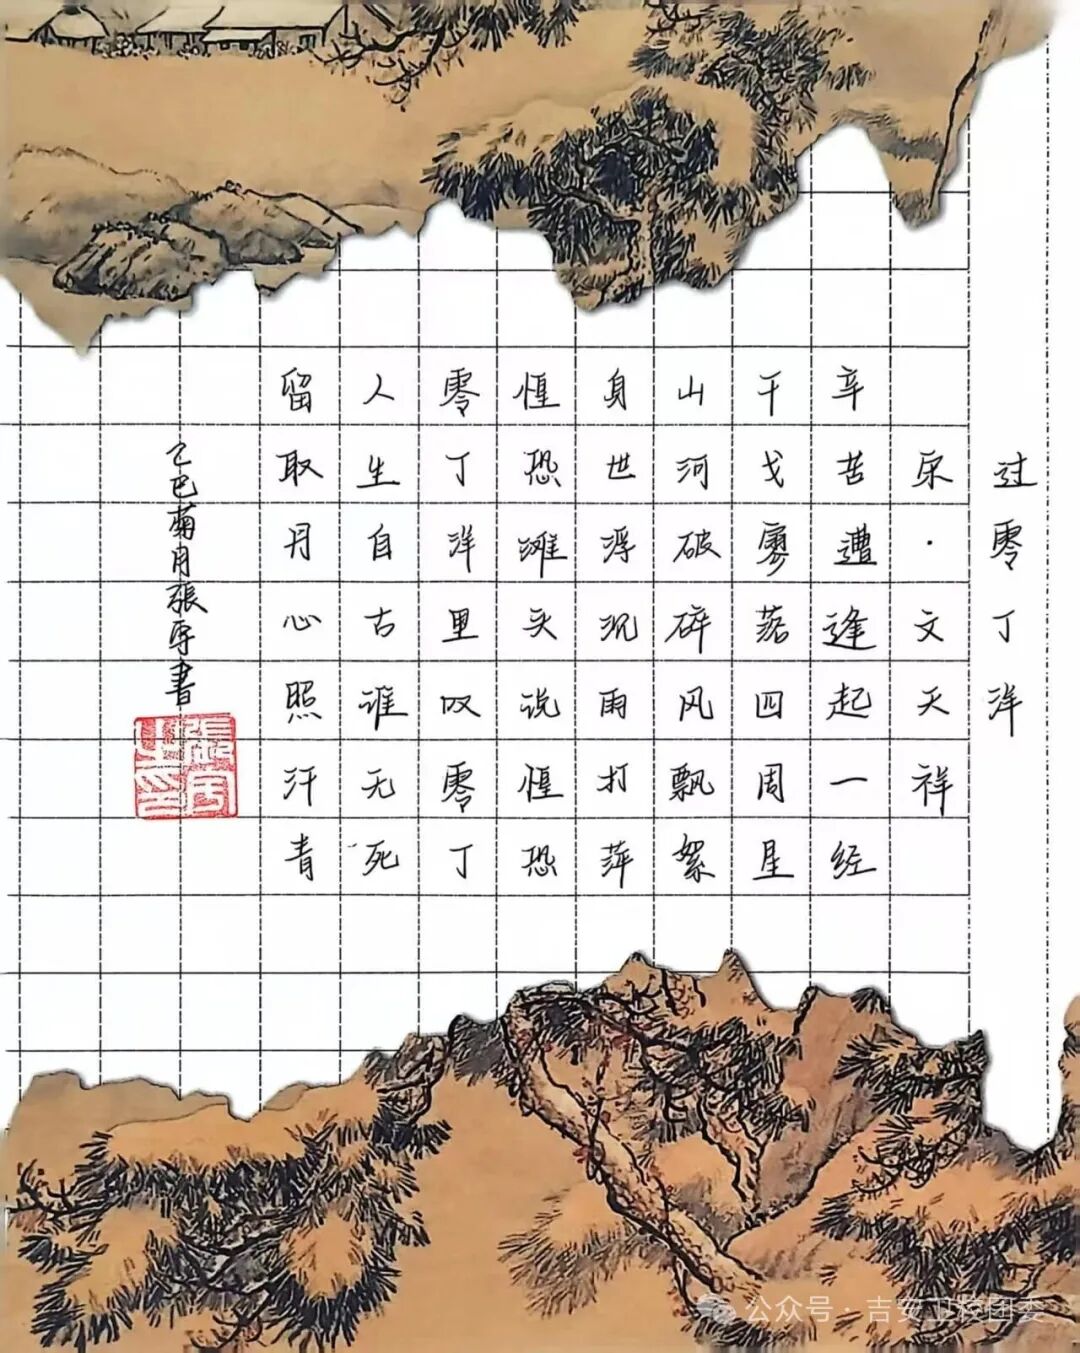 过零丁洋
宋·文天祥
辛苦遭逢起一经
干戈寥落四周星
山河破碎风飘絮
身世浮沉雨打萍
惶恐滩头说惶恐
零丁洋里叹零丁
人生自古谁无死
留取丹心照汗青
乙巳菊月張書
公众号·吉安卫校团委